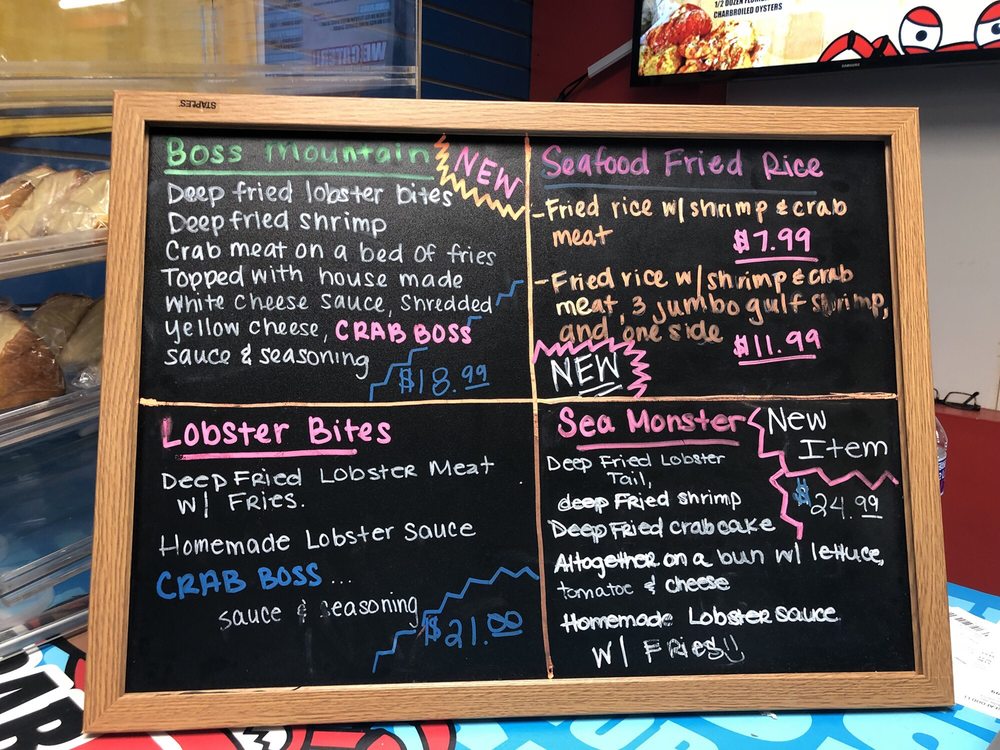 1/2 DOZEN
CHARBROILED OYSTERS
SAMSUNG
STAPLES
Boss Mountain
NEW
Deep fried lobster bites
Deep fried shrimp
Crab meat on a bed of fries
Topped with house made
White cheese sauce, shredded
yellow cheese, CRAB BOSS
sauce & seasoning
$18.99
Seafood Fried Rice
-Fried rice w/shrimp & crab
meat
$7.99
-Fried rice w/shrimp & crab
meat, 3 jumbo gulf shrimp,
and one side
$11.99
NEW
Lobster Bites
Deep Fried Lobster Meat
w/ Fries.
Homemade Lobster Sauce
CRAB BOSS...
sauce & seasoning
$21.00
Sea Monster
New
Item
$24.99
Deep Fried Lobster
Tail,
deep Fried shrimp
Deep Fried crabcake
Altogether on a bun w/ lettuce,
tomatoe & cheese
Homemade Lobster sauce
w/ Fries!!